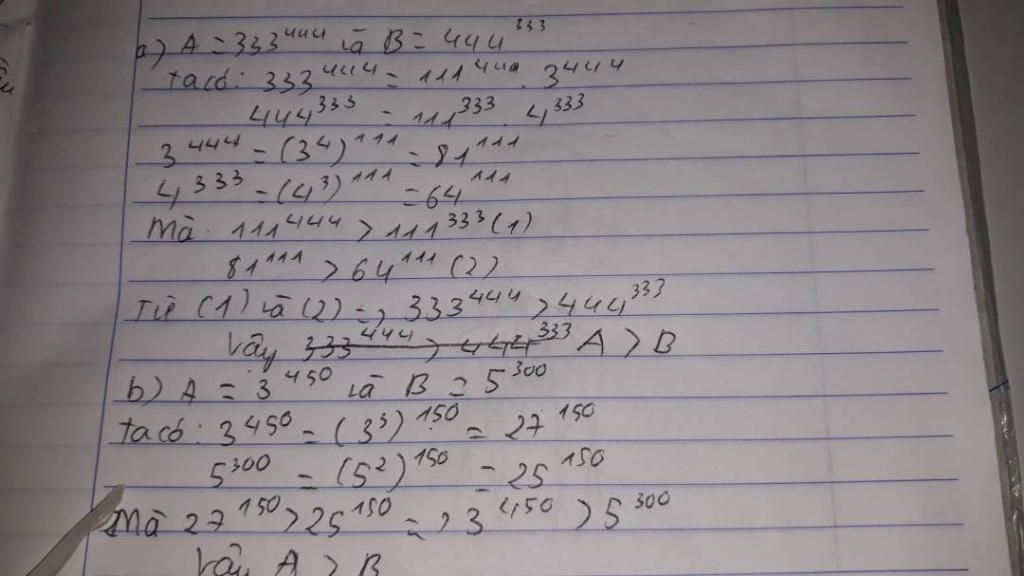 a) A = 333⁴⁴⁴ và B = 444³³³
ta có: 333⁴⁴⁴ = 111⁴⁴⁴ . 3⁴⁴⁴
444³³³ = 111³³³ . 4³³³
3⁴⁴⁴ = (3⁴)¹¹¹ = 81¹¹¹
4³³³ = (4³)¹¹¹ = 64¹¹¹
Mà: 111⁴⁴⁴ > 111³³³ (1)
81¹¹¹ > 64¹¹¹ (2)
Từ (1) và (2) => 333⁴⁴⁴ > 444³³³
Vậy 333⁴⁴⁴ > 444³³³ A > B
b) A = 3⁴⁵⁰ và B = 5³⁰⁰
ta có: 3⁴⁵⁰ = (3³)¹⁵⁰ = 27¹⁵⁰
5³⁰⁰ = (5²)¹⁵⁰ = 25¹⁵⁰
Mà 27¹⁵⁰ > 25¹⁵⁰ => 3⁴⁵⁰ > 5³⁰⁰
Vậy A > B